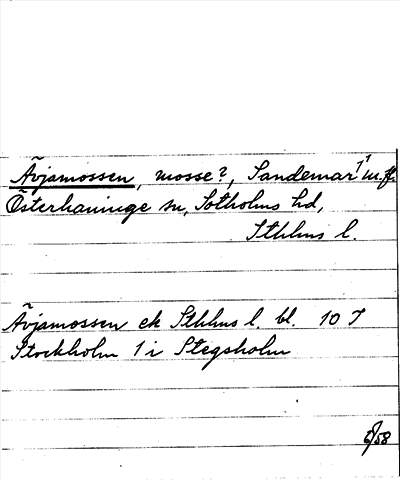 Ävjamossen, mosse?, Sandemar 1¹ m.fl.
Österhaninge sn, Sotholms hd,
Sthlms l.
Ävjamossen ek Sthlms l. bl. 10 I
Stockholm 1 i Stegsholm
6/58